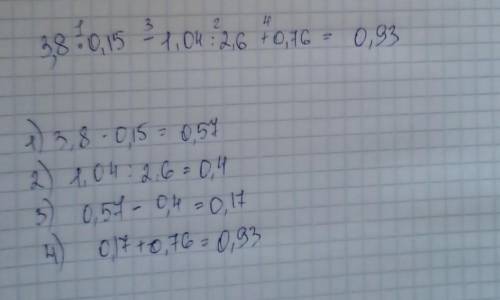 1 3 2 4
3,8 · 0,15 - 1,04 : 2,6 + 0,76 = 0,93
1) 3,8 · 0,15 = 0,57
2) 1,04 : 2,6 = 0,4
3) 0,57 - 0,4 = 0,17
4) 0,17 + 0,76 = 0,93